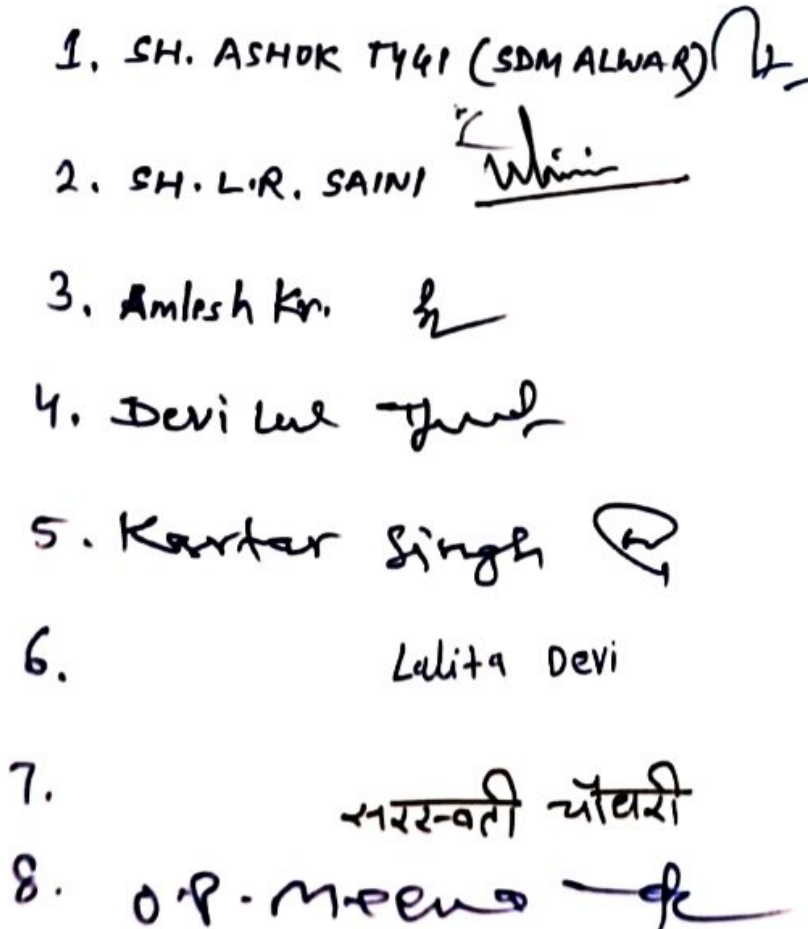 1. SH. ASHOK TYGI (SDM ALWAR)
2. SH. L.R. SAINI
3. Amlesh Kr.
4. Devi Lal
5. Kartar Singh
6. Lalita Devi
7. सरस्वती चौधरी
8. O.P. Meena